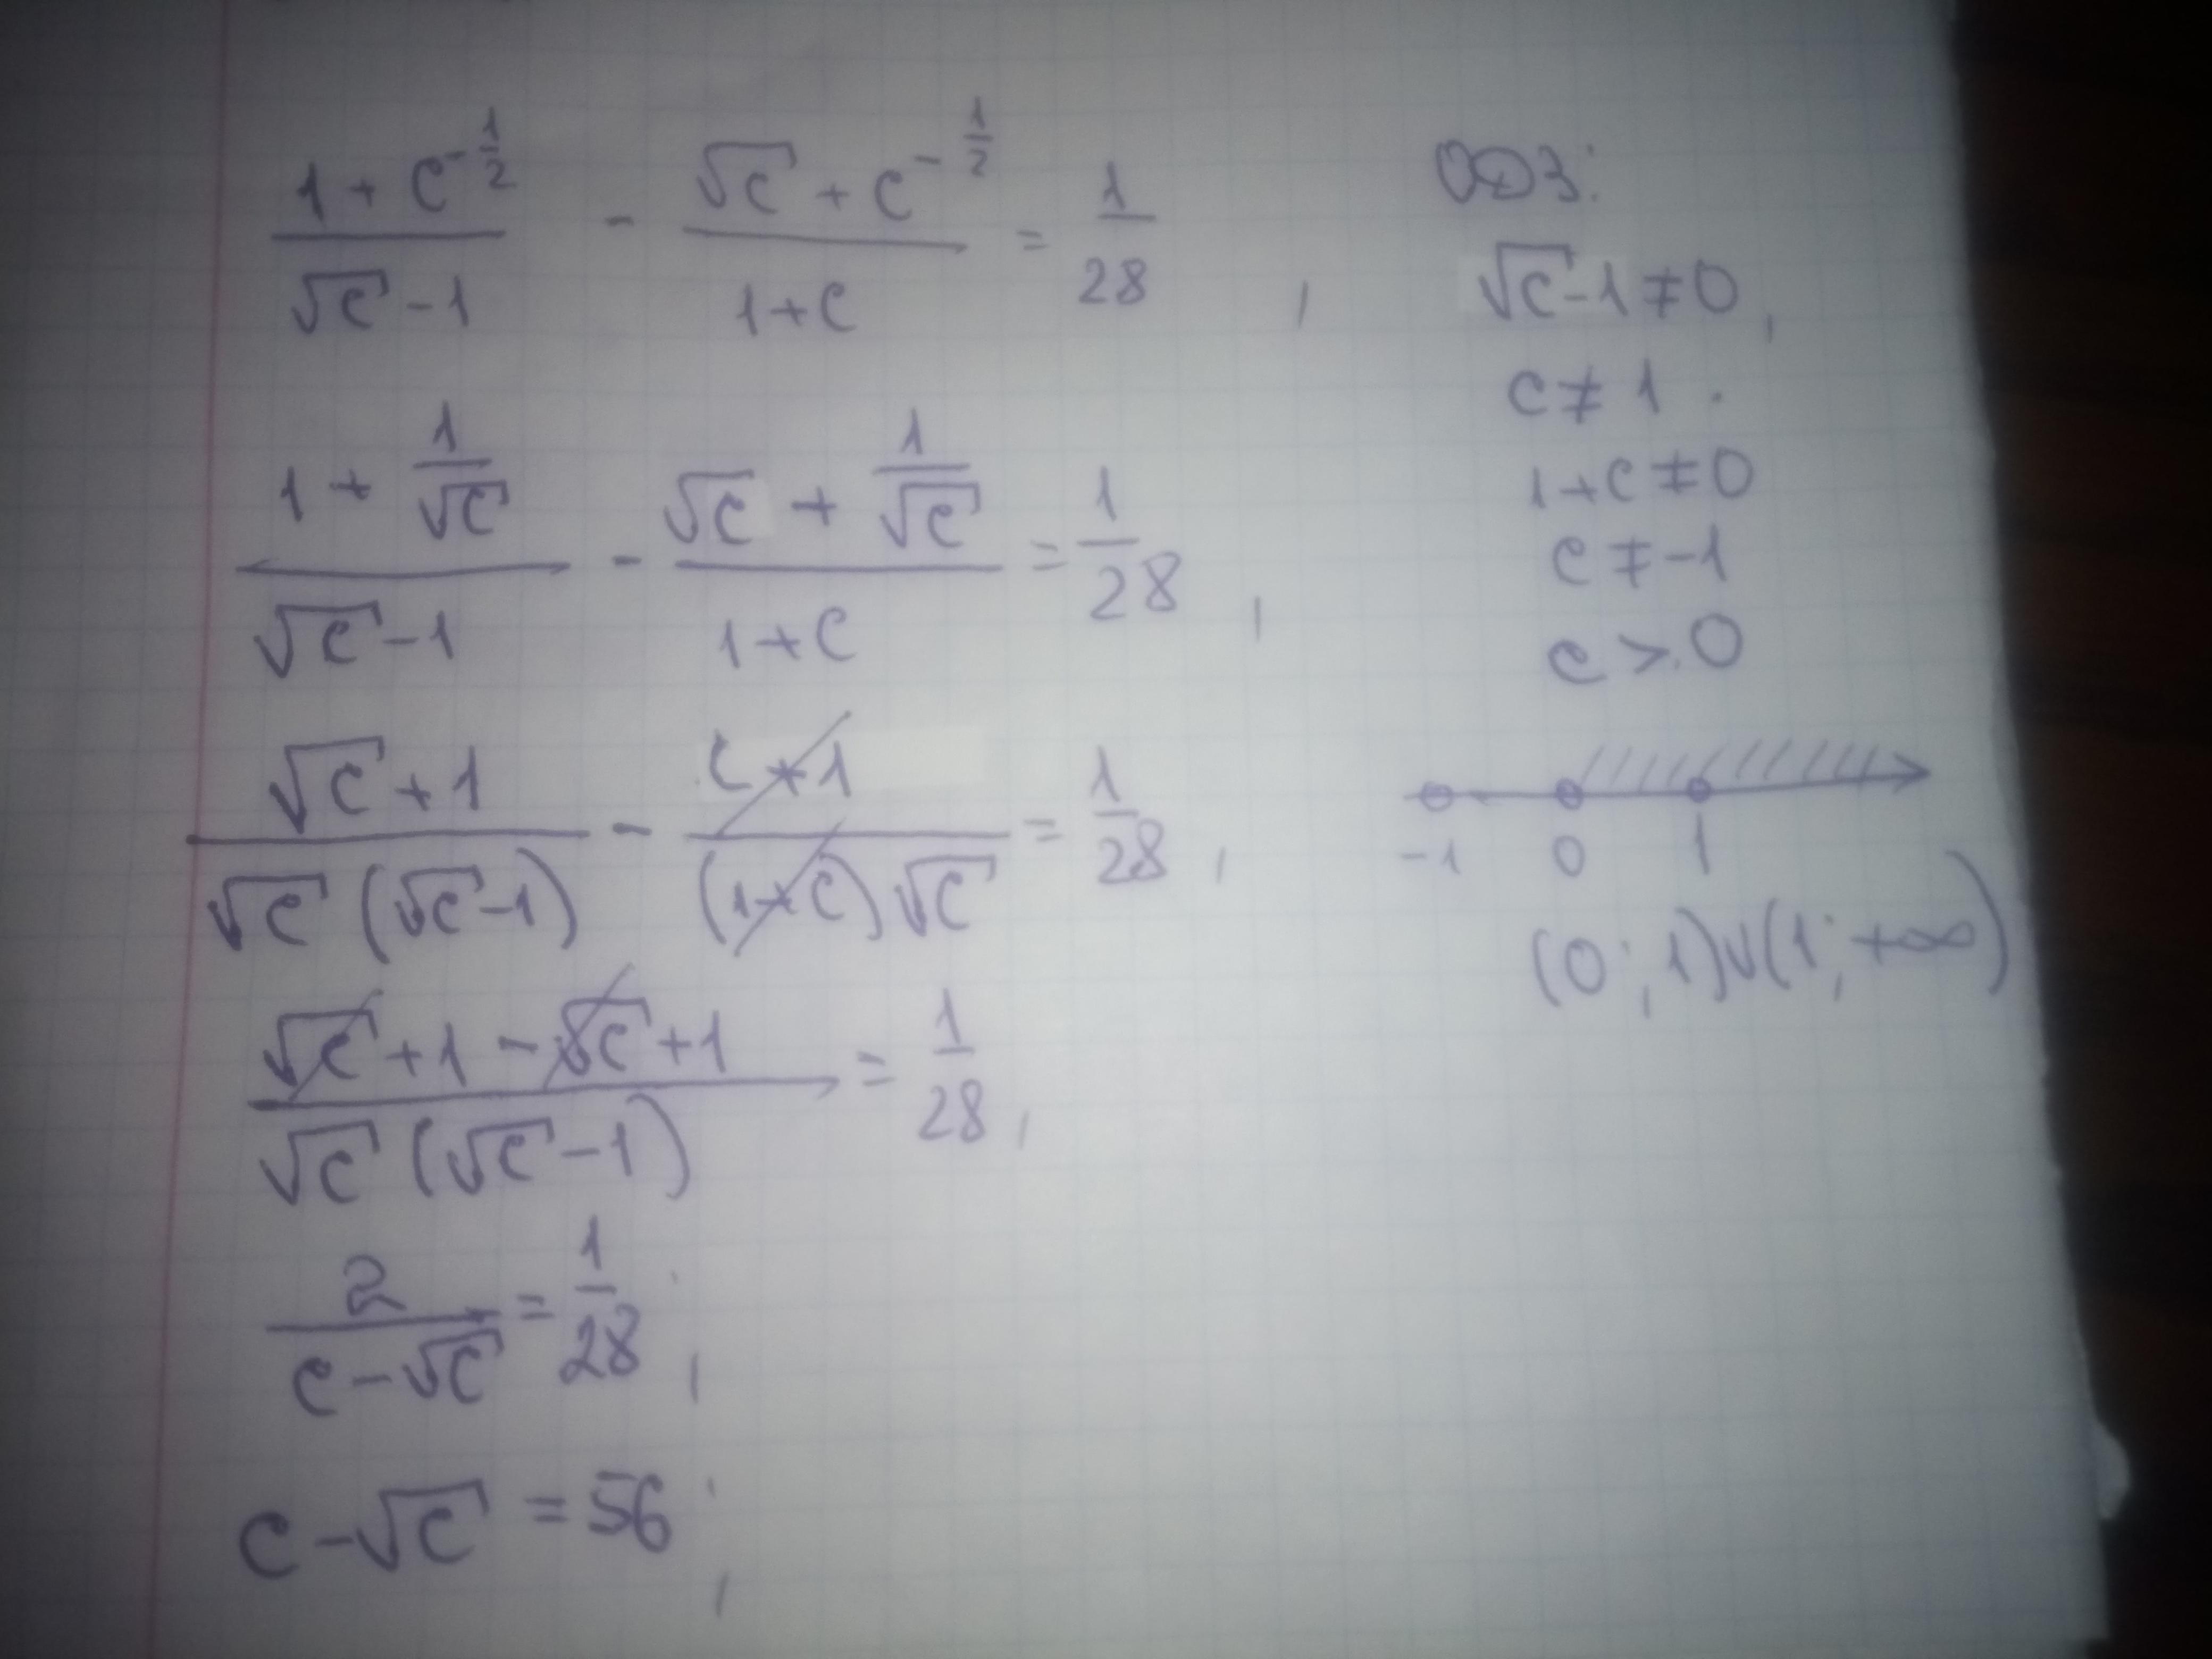 (1 + c^(-1/2))/(√c - 1) - (√c + c^(-1/2))/(1 + c) = 1/28 ,
(1 + 1/√c)/(√c - 1) - (√c + 1/√c)/(1 + c) = 1/28 ,
(√c + 1)/(√c (√c - 1)) - (c + 1)/((1 + c)√c) = 1/28 ,
(√c + 1 - √c + 1)/(√c (√c - 1)) = 1/28 ,
2/(c - √c) = 1/28 ;
c - √c = 56 ;
ОДЗ:
√c - 1 ≠ 0 ,
c ≠ 1 .
1 + c ≠ 0
c ≠ -1
c > 0
-1 0 1
(0 ; 1)∪(1; +∞)